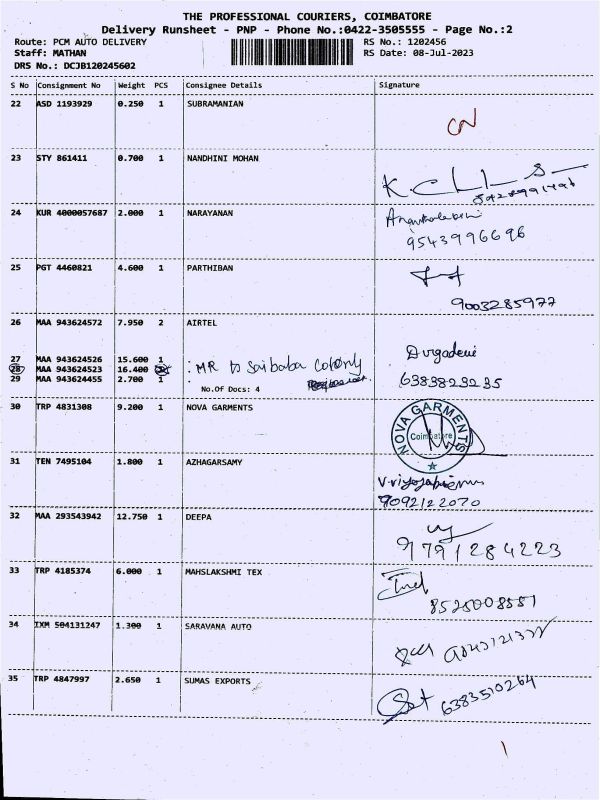 THE PROFESSIONAL COURIERS, COIMBATORE
Delivery Runsheet - PNP - Phone No.:0422-3505555 - Page No.:2
Route: PCM AUTO DELIVERY RS No.: 1202456
Staff: MATHAN RS Date: 08-Jul-2023
DRS No.: DCJB120245602
S No Consignment No Weight PCS Consignee Details Signature
22 ASD 1193929 0.250 1 SUBRAMANIAN
23 STY 861411 0.700 1 NANDHINI MOHAN
24 KUR 4000057687 2.000 1 NARAYANAN
9543996696
25 PGT 4460821 4.600 1 PARTHIBAN
9003285977
26 MAA 943624572 7.950 2 AIRTEL
27 MAA 943624526 15.600 1
28 MAA 943624523 16.400 : MR to Saibaba Colony
29 MAA 943624455 2.700 1
No.Of Docs: 4
Durgadevi
6383823235
30 TRP 4831308 9.200 1 NOVA GARMENTS
NOVA GARMENTS
Coimbatore
31 TEN 7495104 1.800 1 AZHAGARSAMY
9092122070
32 MAA 293543942 12.750 1 DEEPA
9791284223
33 TRP 4185374 6.000 1 MAHSLAKSHMI TEX
8525008551
34 IXM 504131247 1.300 1 SARAVANA AUTO
35 TRP 4847997 2.650 1 SUMAS EXPORTS
6383510264